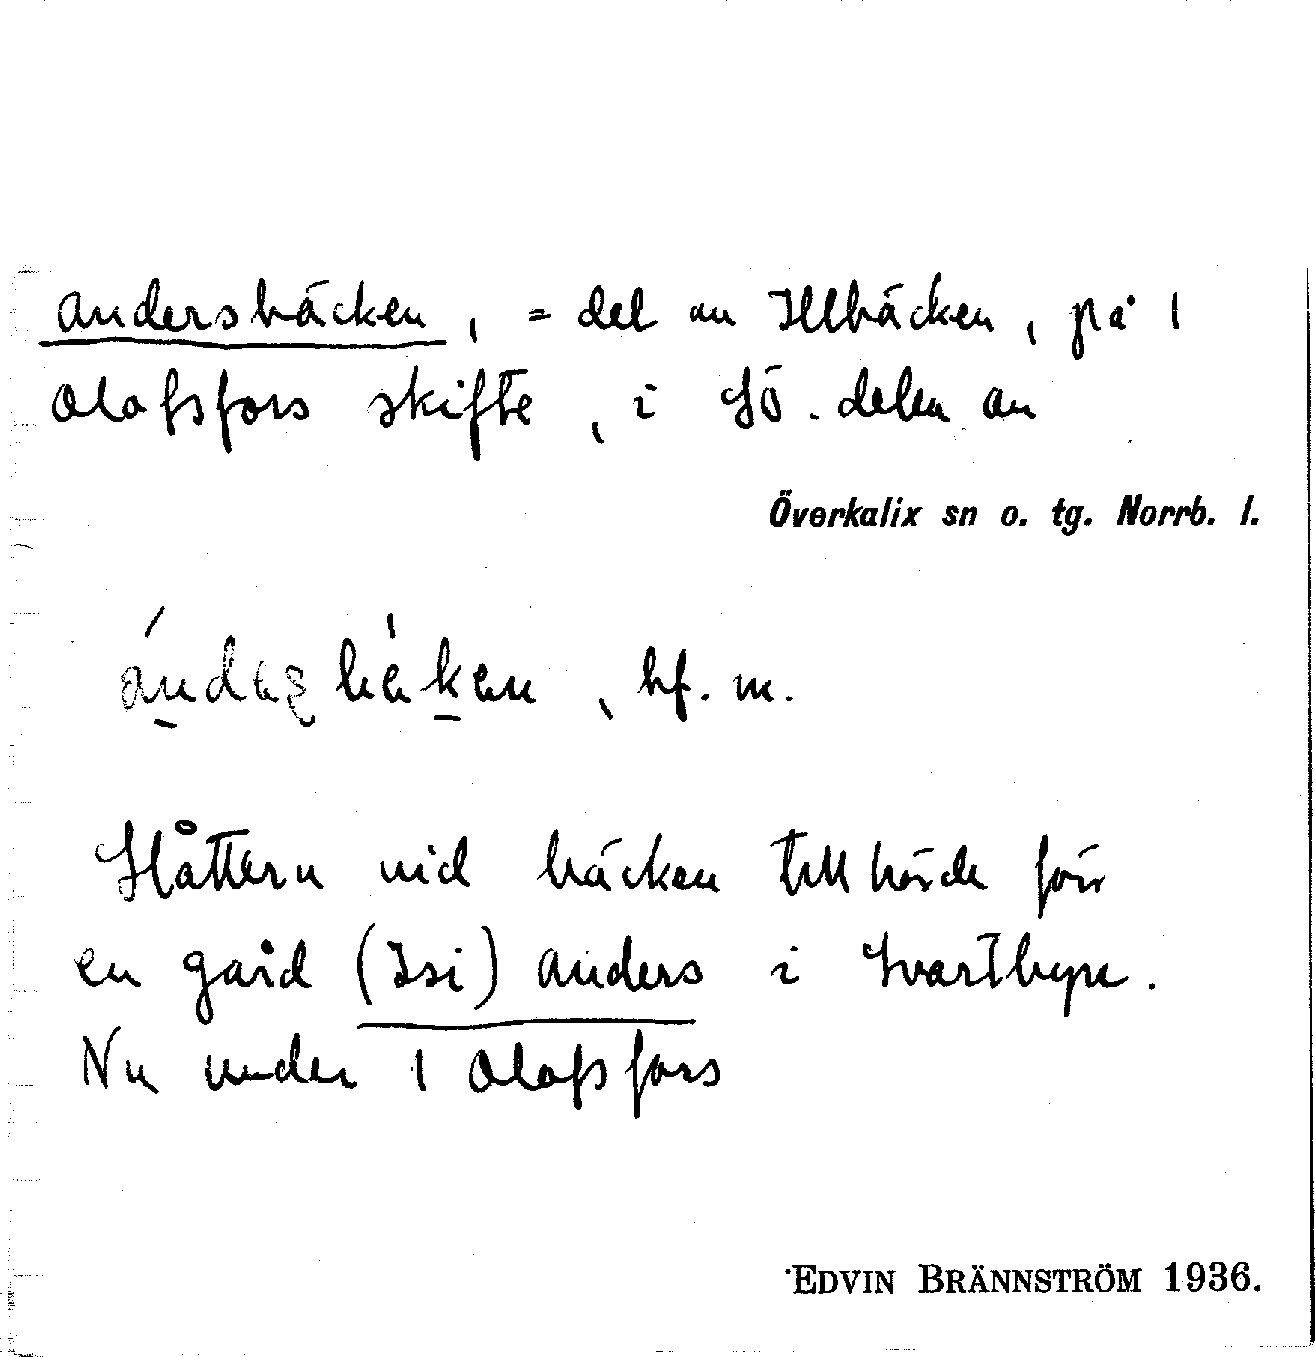 Andersbäcken, = del av Illbäcken, på 1
Olofsfors skifte, i SÖ. delen av
Överkalix sn o. tg. Norrb. l.
bf. m.
Slåttern vid bäcken tillhörde förr
en gård (Isi) Anders i Svartbyn.
Nu under 1 Olofsfors
EDVIN BRÄNNSTRÖM 1936.